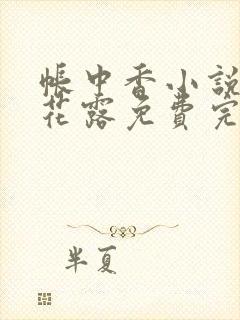 帐中香小說
花露免費完
半夏